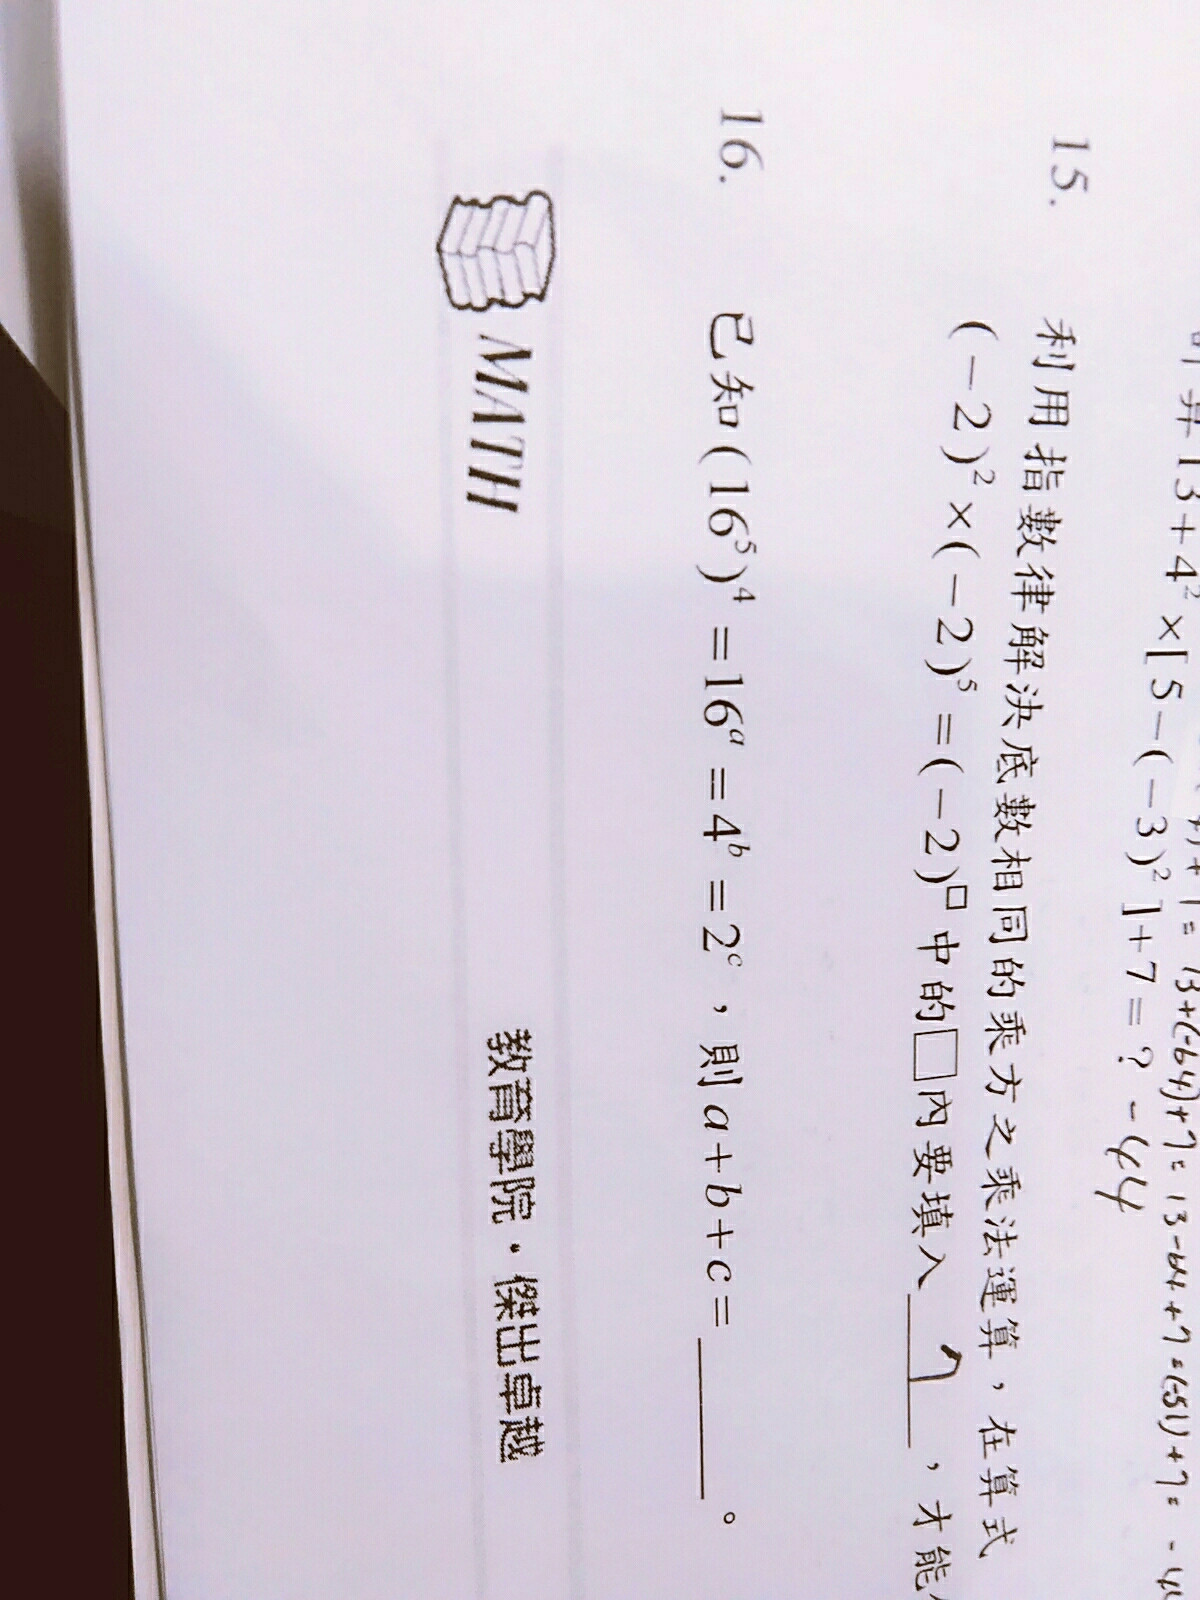 算13+4²×[5-(-3)²]+7=? -44
=13+(-64)+7=13-64+7=(-51)+7=
15. 利用指數律解決底數相同的乘方之乘法運算，在算式
(-2)²×(-2)⁵=(-2)^□中的□內要填入 7 ，才能
16. 已知(16⁵)⁴=16ᵃ=4ᵇ=2ᶜ，則a+b+c=______。
MATH 教育學院·傑出卓越